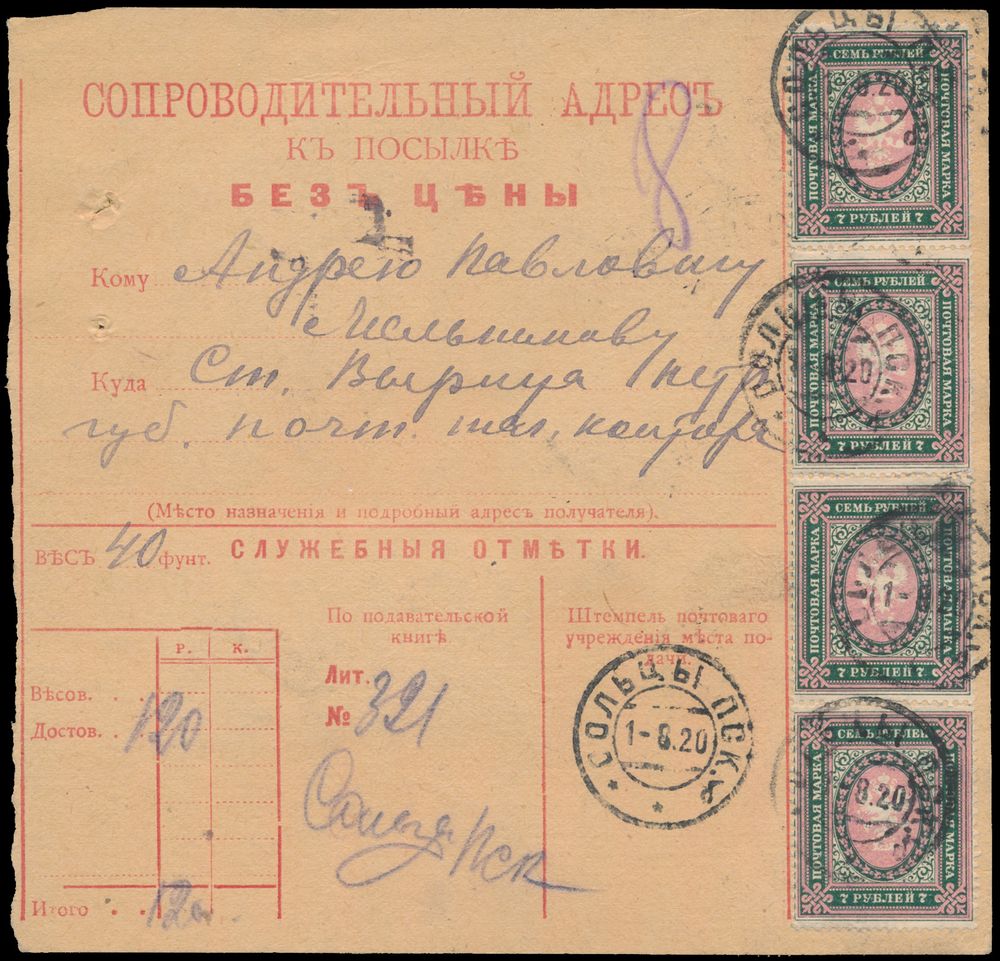 СОПРОВОДИТЕЛЬНЫЙ АДРЕСЪ
КЪ ПОСЫЛКѢ
БЕЗЪ ЦѢНЫ
8
Кому Андрею Павловичу
Мельникову
Куда Ст. Вырица Петр.
губ. почт. тел. контора
(Мѣсто назначенія и подробный адресъ получателя).
ВѢСЪ 40 фунт.
СЛУЖЕБНЫЯ ОТМѢТКИ.
Р. К.
Вѣсов. . .
Достов. . . 120
Итого . . 120
По подавательской
книгѣ
Лит.
№ 321
Сольцы Пск
Штемпель почтоваго
учрежденія мѣста по-
дачи.
СОЛЬЦЫ ПСК.
1-8.20
СЕМЬ РУБЛЕЙ
ПОЧТОВАЯ МАРКА
ПОЧТОВАЯ МАРКА
7 РУБЛЕЙ 7
СЕМЬ РУБЛЕЙ
ПОЧТОВАЯ МАРКА
ПОЧТОВАЯ МАРКА
7 РУБЛЕЙ 7
СЕМЬ РУБЛЕЙ
ПОЧТОВАЯ МАРКА
ПОЧТОВАЯ МАРКА
7 РУБЛЕЙ 7
СЕМЬ РУБЛЕЙ
ПОЧТОВАЯ МАРКА
ПОЧТОВАЯ МАРКА
7 РУБЛЕЙ 7